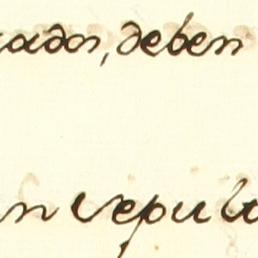 ados, deben
n sepul